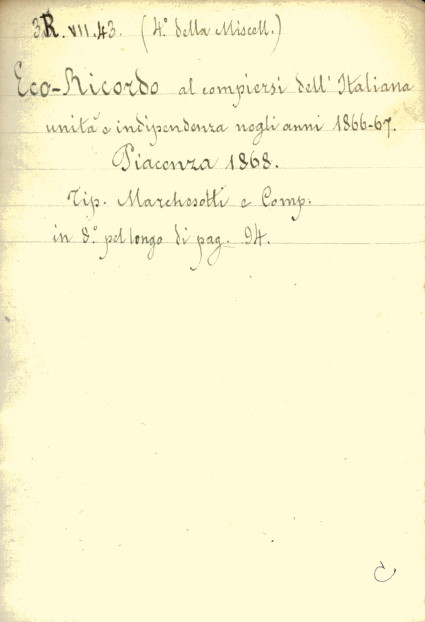 3R. VII. 43. (4.° della Miscell.)
Eco-Ricordo al compiersi dell' Italiana
unità e indipendenza negli anni 1866-67.
Piacenza 1868.
Tip. Marchesotti e Comp.
in 8.° pel longo di pag. 94.